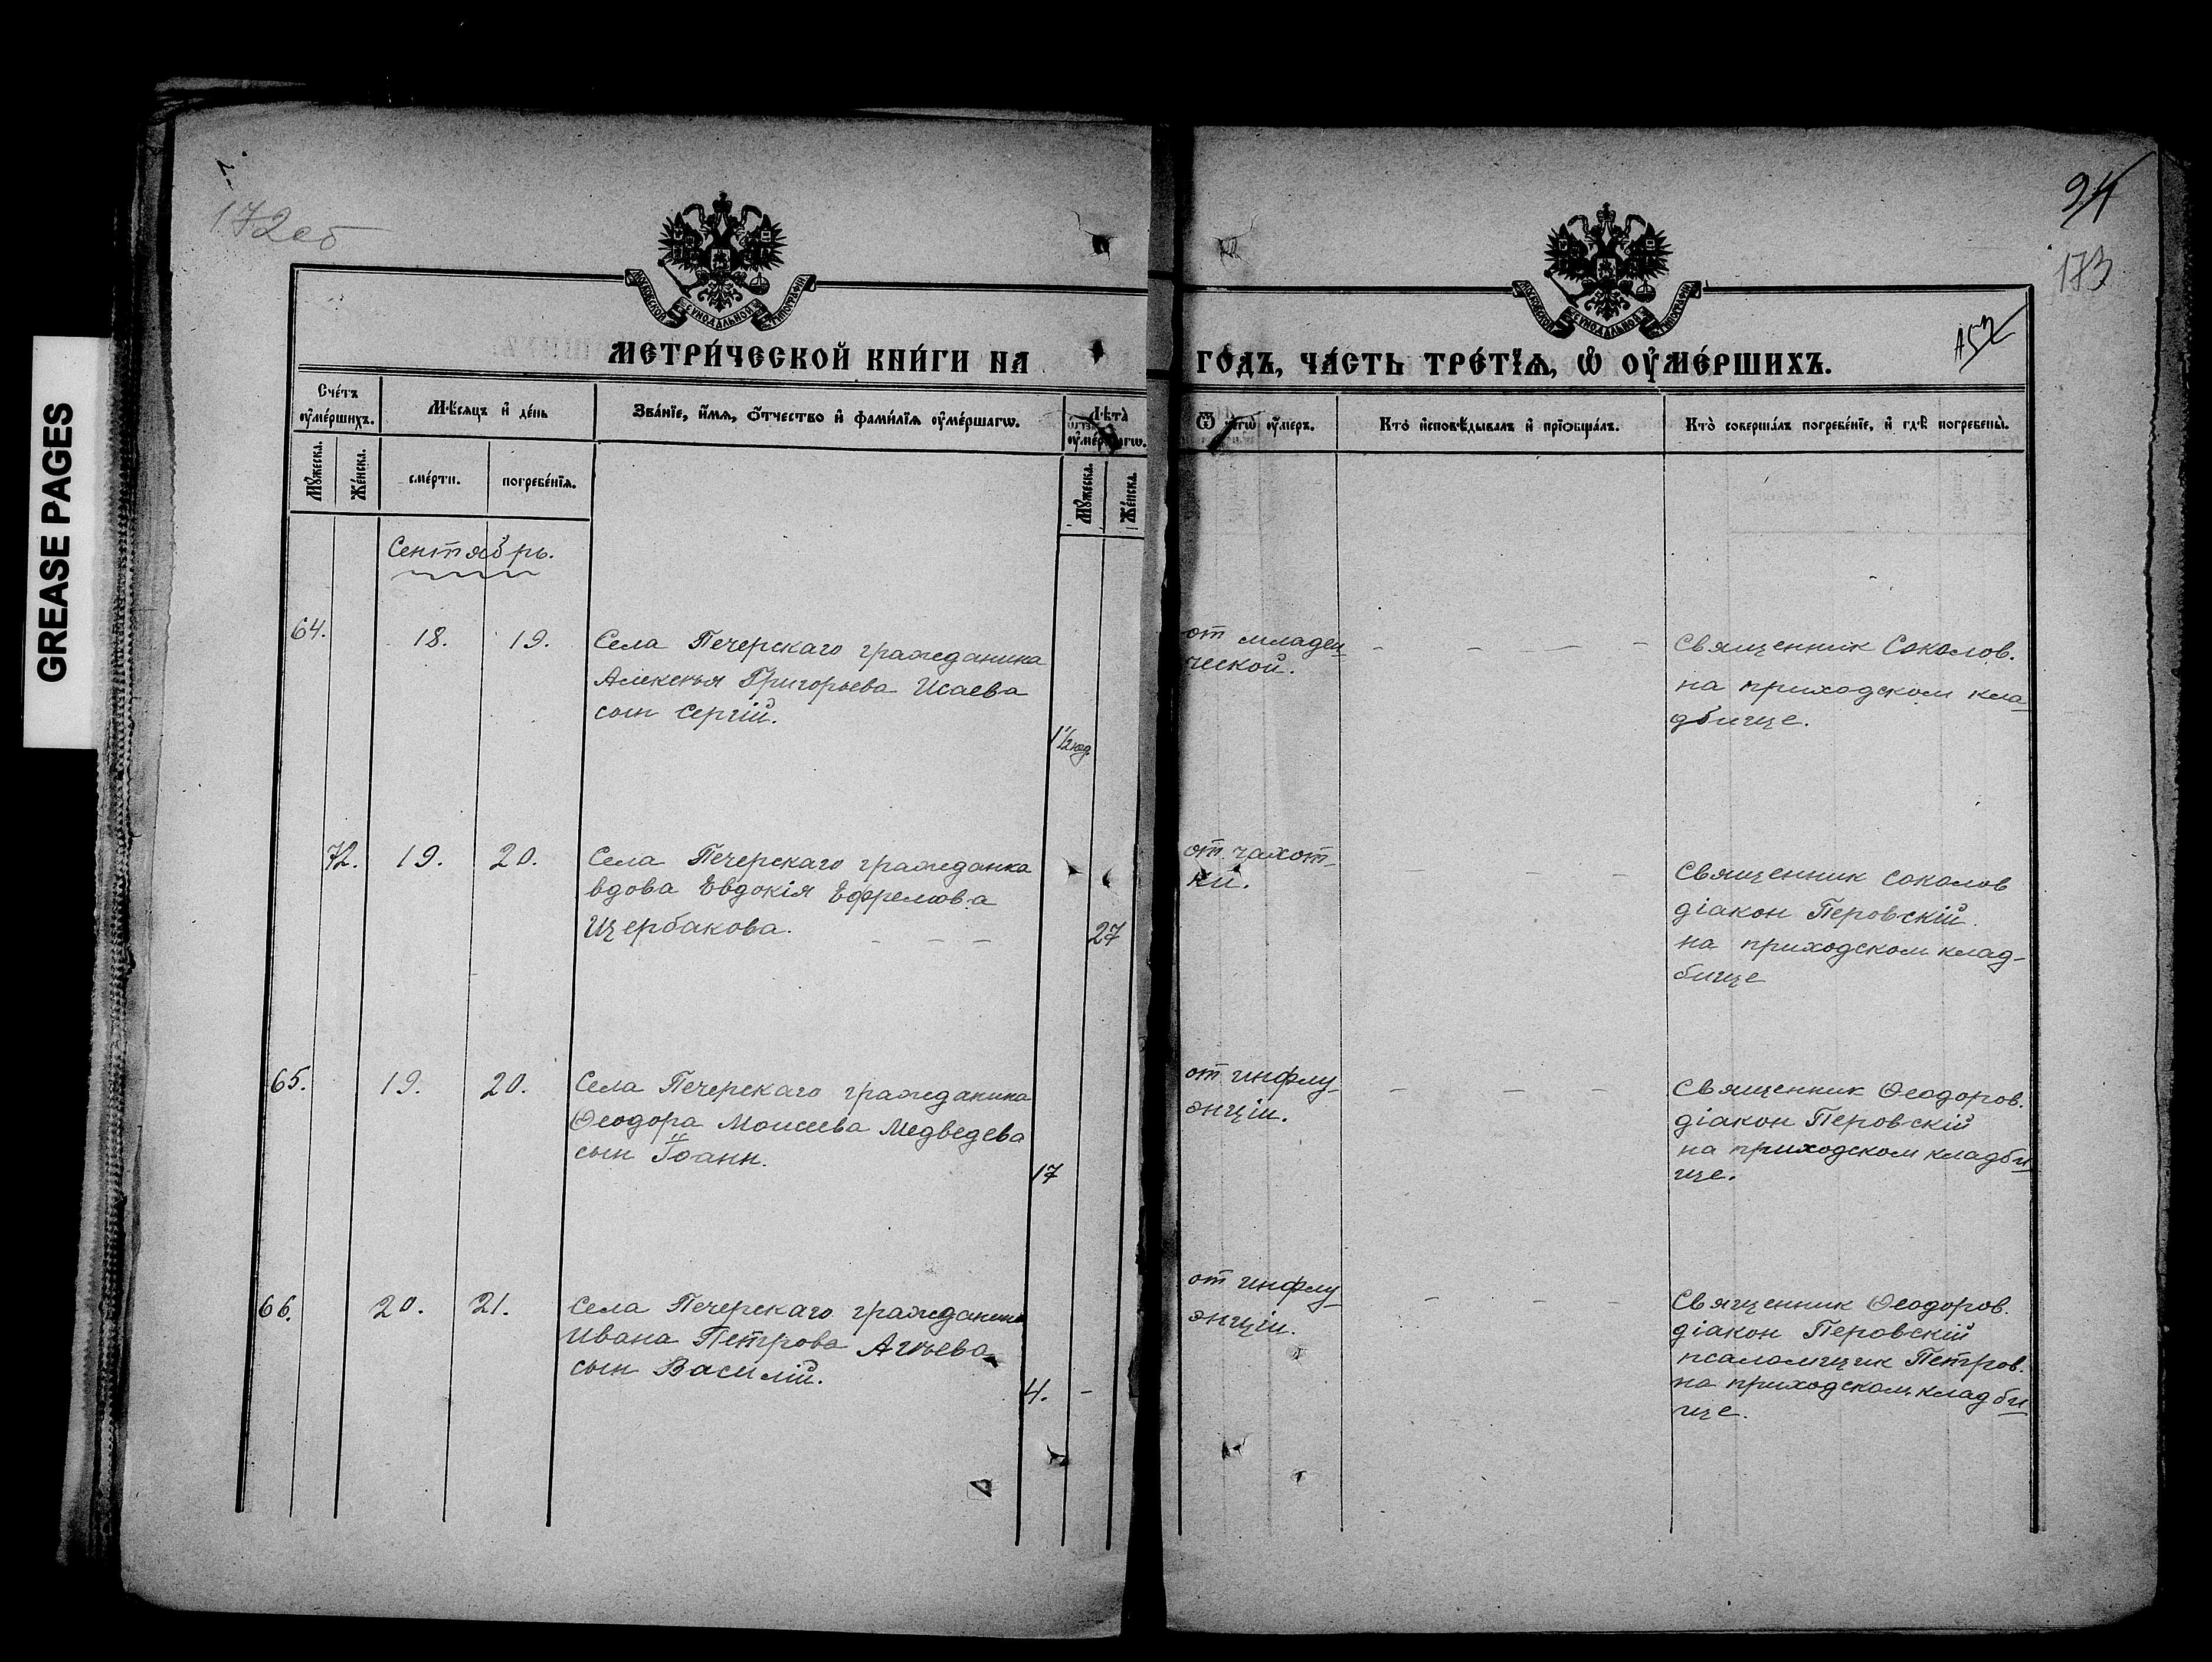 GREASE PAGES
172об
94
173
МОСКОВСКОЙ СѴНОДАЛЬНОЙ ТИПОГРАФІИ
МОСКОВСКОЙ СѴНОДАЛЬНОЙ ТИПОГРАФІИ
МЕТРИ́ЧЕСКОЙ КНИ́ГИ НА
ГО́ДЪ, ЧА́СТЬ ТРЕ́ТІѦ, Ѡ҆ ОУ҆МЕ́РШИХЪ.
Сче́тъ оу҆ме́ршихъ.
Мꙋ́жеска.
Же́нска.
Мѣ́сѧцъ и҆ де́нь
сме́рти.
погребе́нїѧ.
Зва́нїе, и҆́мѧ, ѻ҆́тчество и҆ фами́лїѧ оу҆ме́ршагѡ.
Лѣ́та оу҆ме́ршагѡ.
Мꙋ́жеска.
Же́нска.
Ѿ чегѡ̀ оу҆́меръ.
Кто̀ и҆сповѣ́дывалъ и҆ прїѡбща́лъ.
Кто̀ соверша́лъ погребе́нїе, и҆ гдѣ̀ погребены̀.
Сентябрь.
64.
18.
19.
Села Печерскаго гражданина
Алексѣя Григорьева Исаева
сын Сергій.
1½ год.
от младен
ческой.
Священник Соколов.
на приходском кла
дбище.
72.
19.
20.
Села Печерскаго гражданка
вдова Евдокія Ефремова
Щербакова.
27
от чахот-
ки.
Священник Соколов
діакон Перовскій.
на приходском клад-
бище
65.
19.
20.
Села Печерскаго гражданина
Ѳеодора Моисеева Медведева
сын Іоанн.
17
от инфлу
энціи.
Священник Ѳеодоров.
діакон Перовскій
на приходском кладби
ще.
66.
20.
21.
Села Печерскаго гражданина
Ивана Петрова Агѣева
сын Василій.
4.
от инфлу
энціи.
Священник Ѳеодоров.
діакон Перовскій
псаломщик Петров.
на приходском кладби
ще.